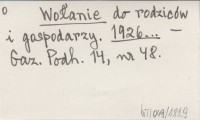 0 Wołanie do rodziców
i gospodarzy. 1926... —
Gaz. Podh. 14, nr 48.